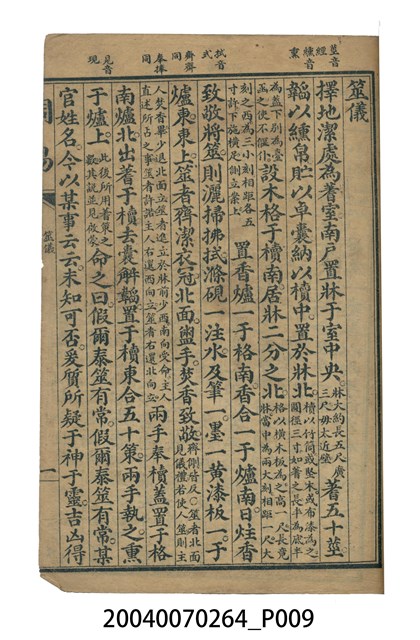 筮儀
擇地潔處為蓍室南戶置牀于室中央牀大約長五尺廣三尺毋太近壁蓍五十莖
韜以纁帛貯以皁囊納以櫝中置於牀北櫝以竹筒或堅木或布漆為之圓徑三寸如蓍之長半為底半
為蓋下別為臺函之使不偃仆設木格于櫝南居牀二分之北格以橫木板為之高一尺長竟牀當中為兩大刻相距一尺大
刻之西為三小刻相距各五寸許下施橫足側立案上置香爐一于格南香合一于爐南日炷香
致敬將筮則灑掃拂拭滌硯一注水及筆一墨一黃漆板一于
爐東東上筮者齊潔衣冠北面盥手焚香致敬筮者北面見儀禮若使人筮則主
人焚香畢少退北面立筮者進立於牀前少西南向受命主人直述所占之事筮者許諾主人右還西向立筮者右還北向立兩手奉櫝蓋置于格
南爐北出蓍于櫝去囊解韜置于櫝東合五十策兩手執之熏
于爐上此後所用蓍策之數其說並見啟蒙命之曰假爾泰筮有常假爾泰筮有常某
官姓名今以某事云云未知可否爰質所疑于神于靈吉凶得
莖音
經
纁音
熏
拭音
式
齊齋
同
奉捧
同
見音
現
周易
筮儀
一
20040070264_P009